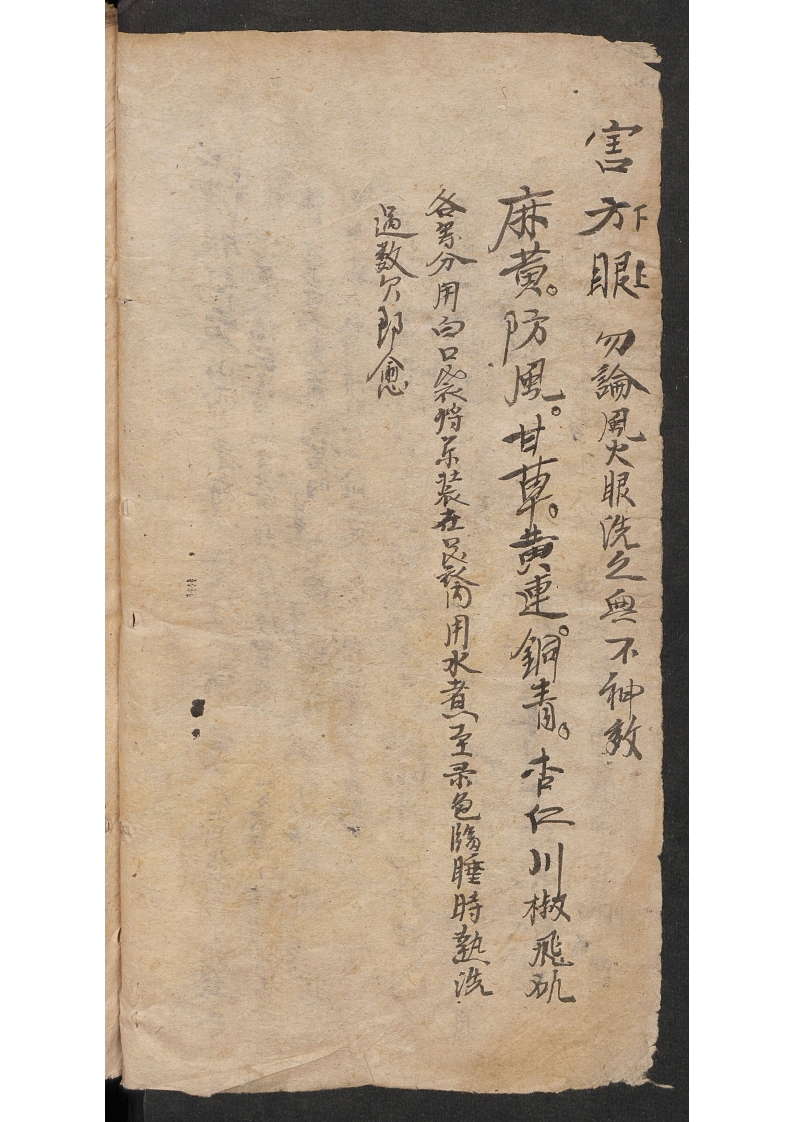 害方下眼上 勿論風火眼洗之無不神效
麻黄。防風。甘草。黄連。銅青。杏仁川椒飛矾
各等分用白口袋将茶装在袋内用水煮至录色臨睡時熱洗
過数欠即愈